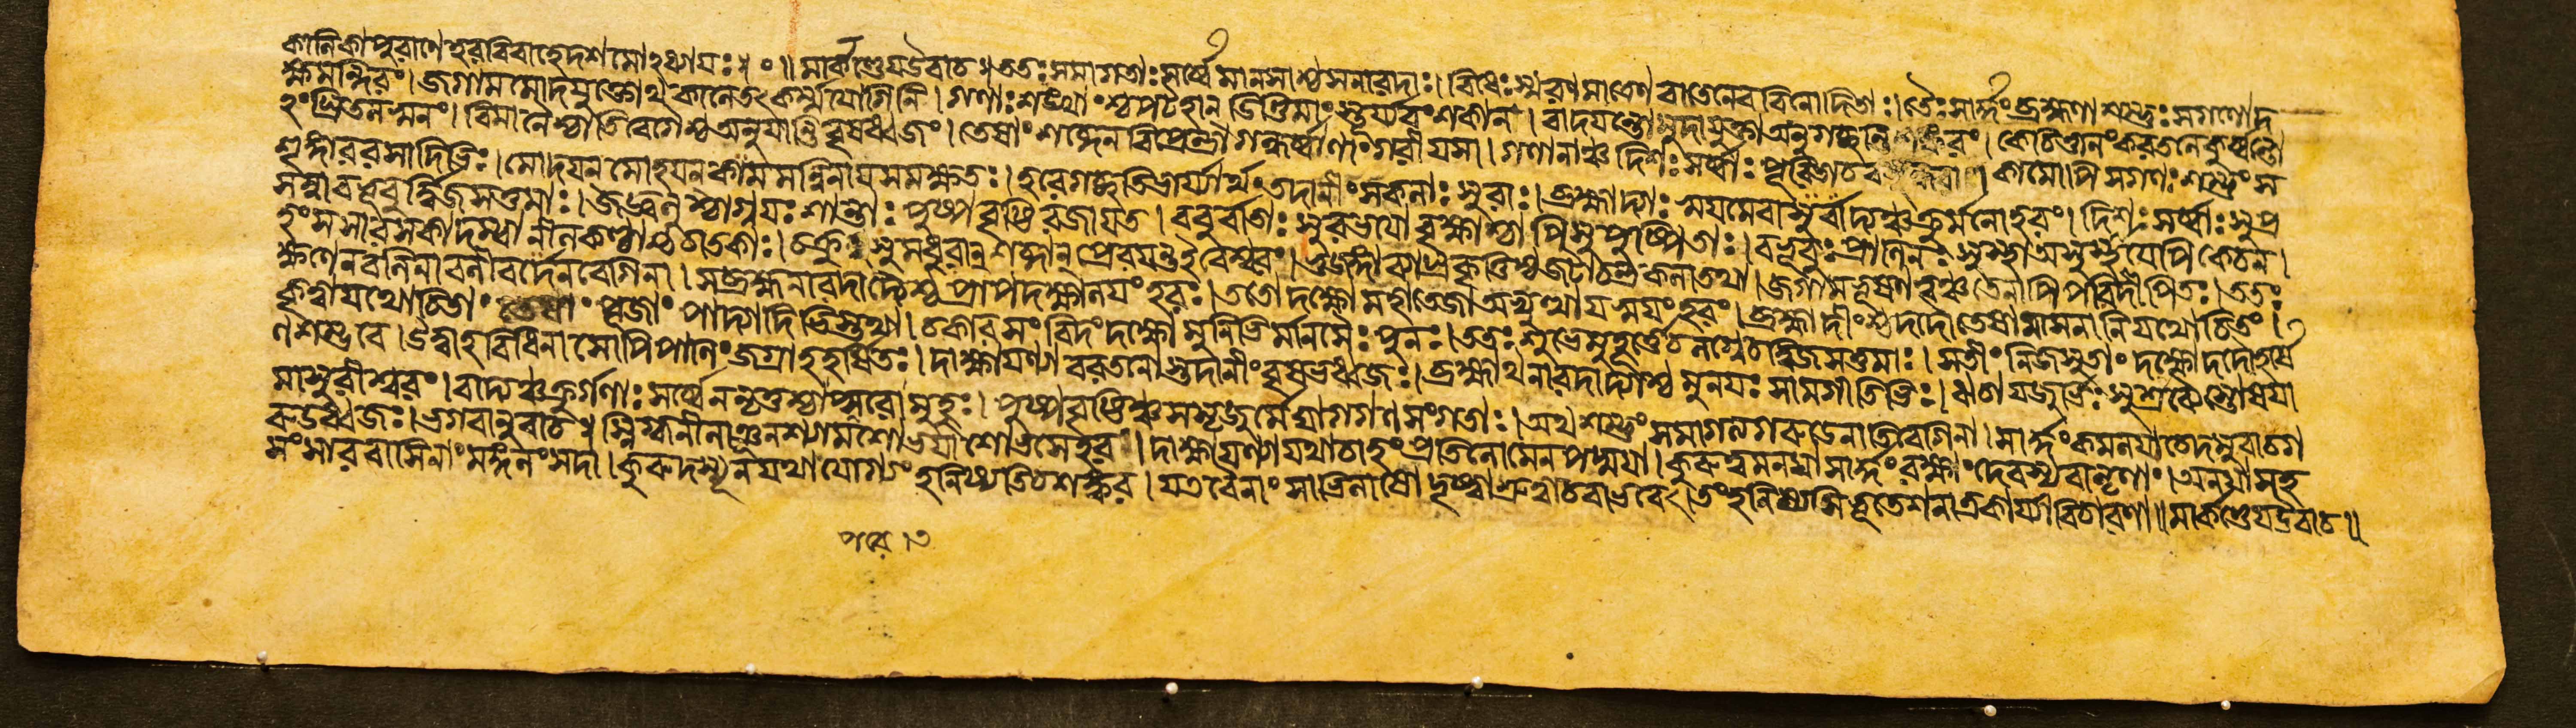 কালিকাপুরাণে হরবিবাহে দশমোঽধ্যায়ঃ॥০॥ মার্কণ্ডেয় উবাচ॥ ততঃ সমাগতাঃ সর্ব্বে মানসাশ্চ সনারদাঃ। বিধেঃ স্মরণমাত্রেণ বাতেনেব বিনোদিতাঃ। তৈঃ সার্দ্ধং ব্রহ্মণা শম্ভুঃ সগণো দ
ক্ষমন্দিরং। জগাম মোদযুক্তোথ কালে তৎকর্ম্মযোগিনি। গণাঃ শঙ্খাংশ্চ পটহান্ ডিণ্ডিমাংস্তূর্য্যবংশকান্। বাদয়ন্তো মুদাযুক্তা অনুগচ্ছন্তি শঙ্করং। কেচিত্তালং করতলে কুর্ব্বন্তো
হংঘ্রিতলস্বনং। বিমানৈশ্চাতিবেগৈশ্চ অনুযান্তি বৃষধ্বজং। তেষাং শব্দেন বিপ্রেন্দ্রা গন্ধর্ব্বাণাং গরীয়সা। গণানাঞ্চ দিশঃ সর্ব্বাঃ পূরিতা কামোপি সগণঃ শম্ভুং স
শৃঙ্গাররসাদিভিঃ। মোদয়ন্ মোহয়ন্ কামমন্বিয়ায় সমক্ষতঃ। হরে গচ্ছতি ভার্য্যার্থং তদানীং সকলাঃ সুরাঃ। ব্রহ্মাদ্যাঃ স্বয়মেবাসুর্বাদ্যঞ্চক্রুর্মনোহরং। দিশঃ সর্ব্বাঃ সুপ্র
সন্না বভূবুর্দ্বিজসত্তমাঃ। জজ্বলুশ্চাগ্নয়ঃ শান্তাঃ পুষ্পবৃষ্টিরজায়ত। ববুর্বাতাঃ সুরভয়ো বৃক্ষাশ্চাপি সুপুষ্পিতাঃ। বভূবুঃ প্রাণিনঃ সুস্থা অসুস্থা যেপি কেচন।
হংসসারসকাদম্বা নীলকণ্ঠাশ্চ চাতকাঃ। চক্রুঃ সুমধুরান্ শব্দান্ প্রেরয়ন্ত ইবেশ্বরং। জটা চন্দ্রকলা তথা। জগাম ভূষণত্বঞ্চ তেনাপি পরিদীপিতঃ। ততঃ
ক্ষণেন বলিনা বলীবর্দ্দেন বেগিনা। সব্রহ্মনারদাদ্যৈশ্চ প্রাপ দক্ষালয়ং হরঃ। ততো দক্ষো মহাতেজা অভ্যুত্থায় স্বয়ং হরং। ব্রহ্মাদীংশ্চ দদৌ তেষামাসনানি যথোচিতং।
কৃত্বা যথোচিতাং তেষাং পূজাং পাদ্যাদিভিস্তথা। চকার সংবিদং দক্ষো মুনিভির্মানসৈঃ পুনঃ। ততঃ শুভে মুহূর্ত্তে চ লগ্নে চ দ্বিজসত্তমাঃ। সতীং নিজসুতাং দক্ষো দদৌ হর্ষে
ণ শম্ভবে। উদ্বাহবিধিনা সোপি পাণিং জগ্রাহ হর্ষিতঃ। দাক্ষায়ণ্যা বরতনোস্তদানীং বৃষভধ্বজঃ। ব্রহ্মাথ নারদাদ্যাশ্চ মুনয়ঃ সামগীতিভিঃ। ঋগ্যজুর্ভিঃ সুশ্রাব্যৈস্তোষয়া
মাসুরীশ্বরং। বাদ্যঞ্চক্রুর্গণাঃ সর্ব্বে ননৃতুশ্চাপ্সরো মুহুঃ। পুষ্পবৃষ্টিঞ্চ সসৃজুর্মেঘা গগণসংগতাঃ। অথ শম্ভুং সমাগত্য গরুডেনাতিবেগিনা। সার্দ্ধং কমলয়া চেদমুবাচ গ
রুডধ্বজঃ। ভগবানুবাচ॥ স্নিগ্ধনীলাঞ্জনশ্যামশোভয়া শোভসে হর। দাক্ষায়ণ্যা যথা চাহং প্রতিলোমেন পদ্ময়া। কুরু ত্বমনয়া সার্দ্ধং রক্ষাং দেবস্য বা নৃণাং। অনয়া সহ
সংসারবাসিনাং মঙ্গলং সদা। কুরু দস্যূন্ যথাযোগ্যং হনিষ্যতি চ শঙ্কর। য এবৈনাং সাভিলাষো দৃষ্ট্বা শ্রুত্বা চ বা ভবেৎ। তং হনিষ্যসি ভূতেশ নাত্র কার্য্যা বিচারণা॥ মার্কণ্ডেয় উবাচ॥
পত্রে ৷৩